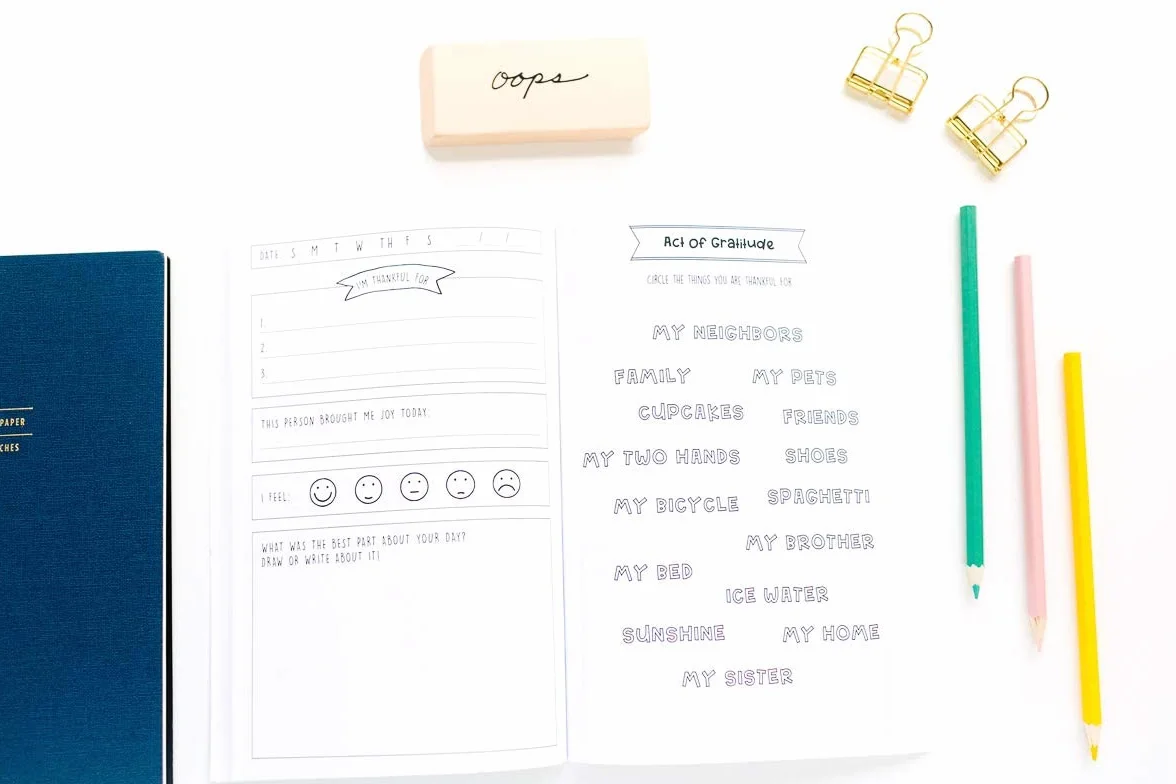 oops
PAPER
CHES
DATE: S M T W TH F S / /
I'M THANKFUL FOR
1.
2.
3.
THIS PERSON BROUGHT ME JOY TODAY:
I FEEL:
WHAT WAS THE BEST PART ABOUT YOUR DAY?
DRAW OR WRITE ABOUT IT!
Act Of Gratitude
CIRCLE THE THINGS YOU ARE THANKFUL FOR
MY NEIGHBORS
FAMILY MY PETS
CUPCAKES FRIENDS
MY TWO HANDS SHOES
MY BICYCLE SPAGHETTI
MY BROTHER
MY BED
ICE WATER
SUNSHINE MY HOME
MY SISTER